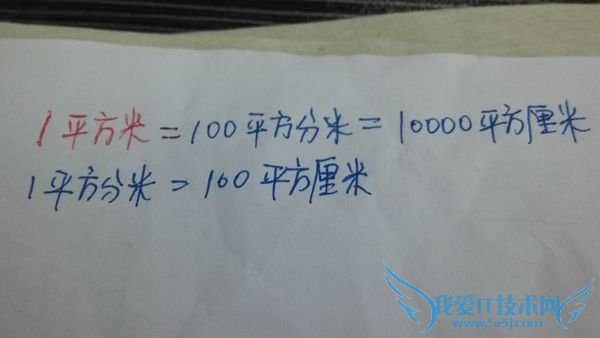 1平方米=100平方分米=10000平方厘米
1平方分米=100平方厘米
我爱IT技术网
www.52ij.com